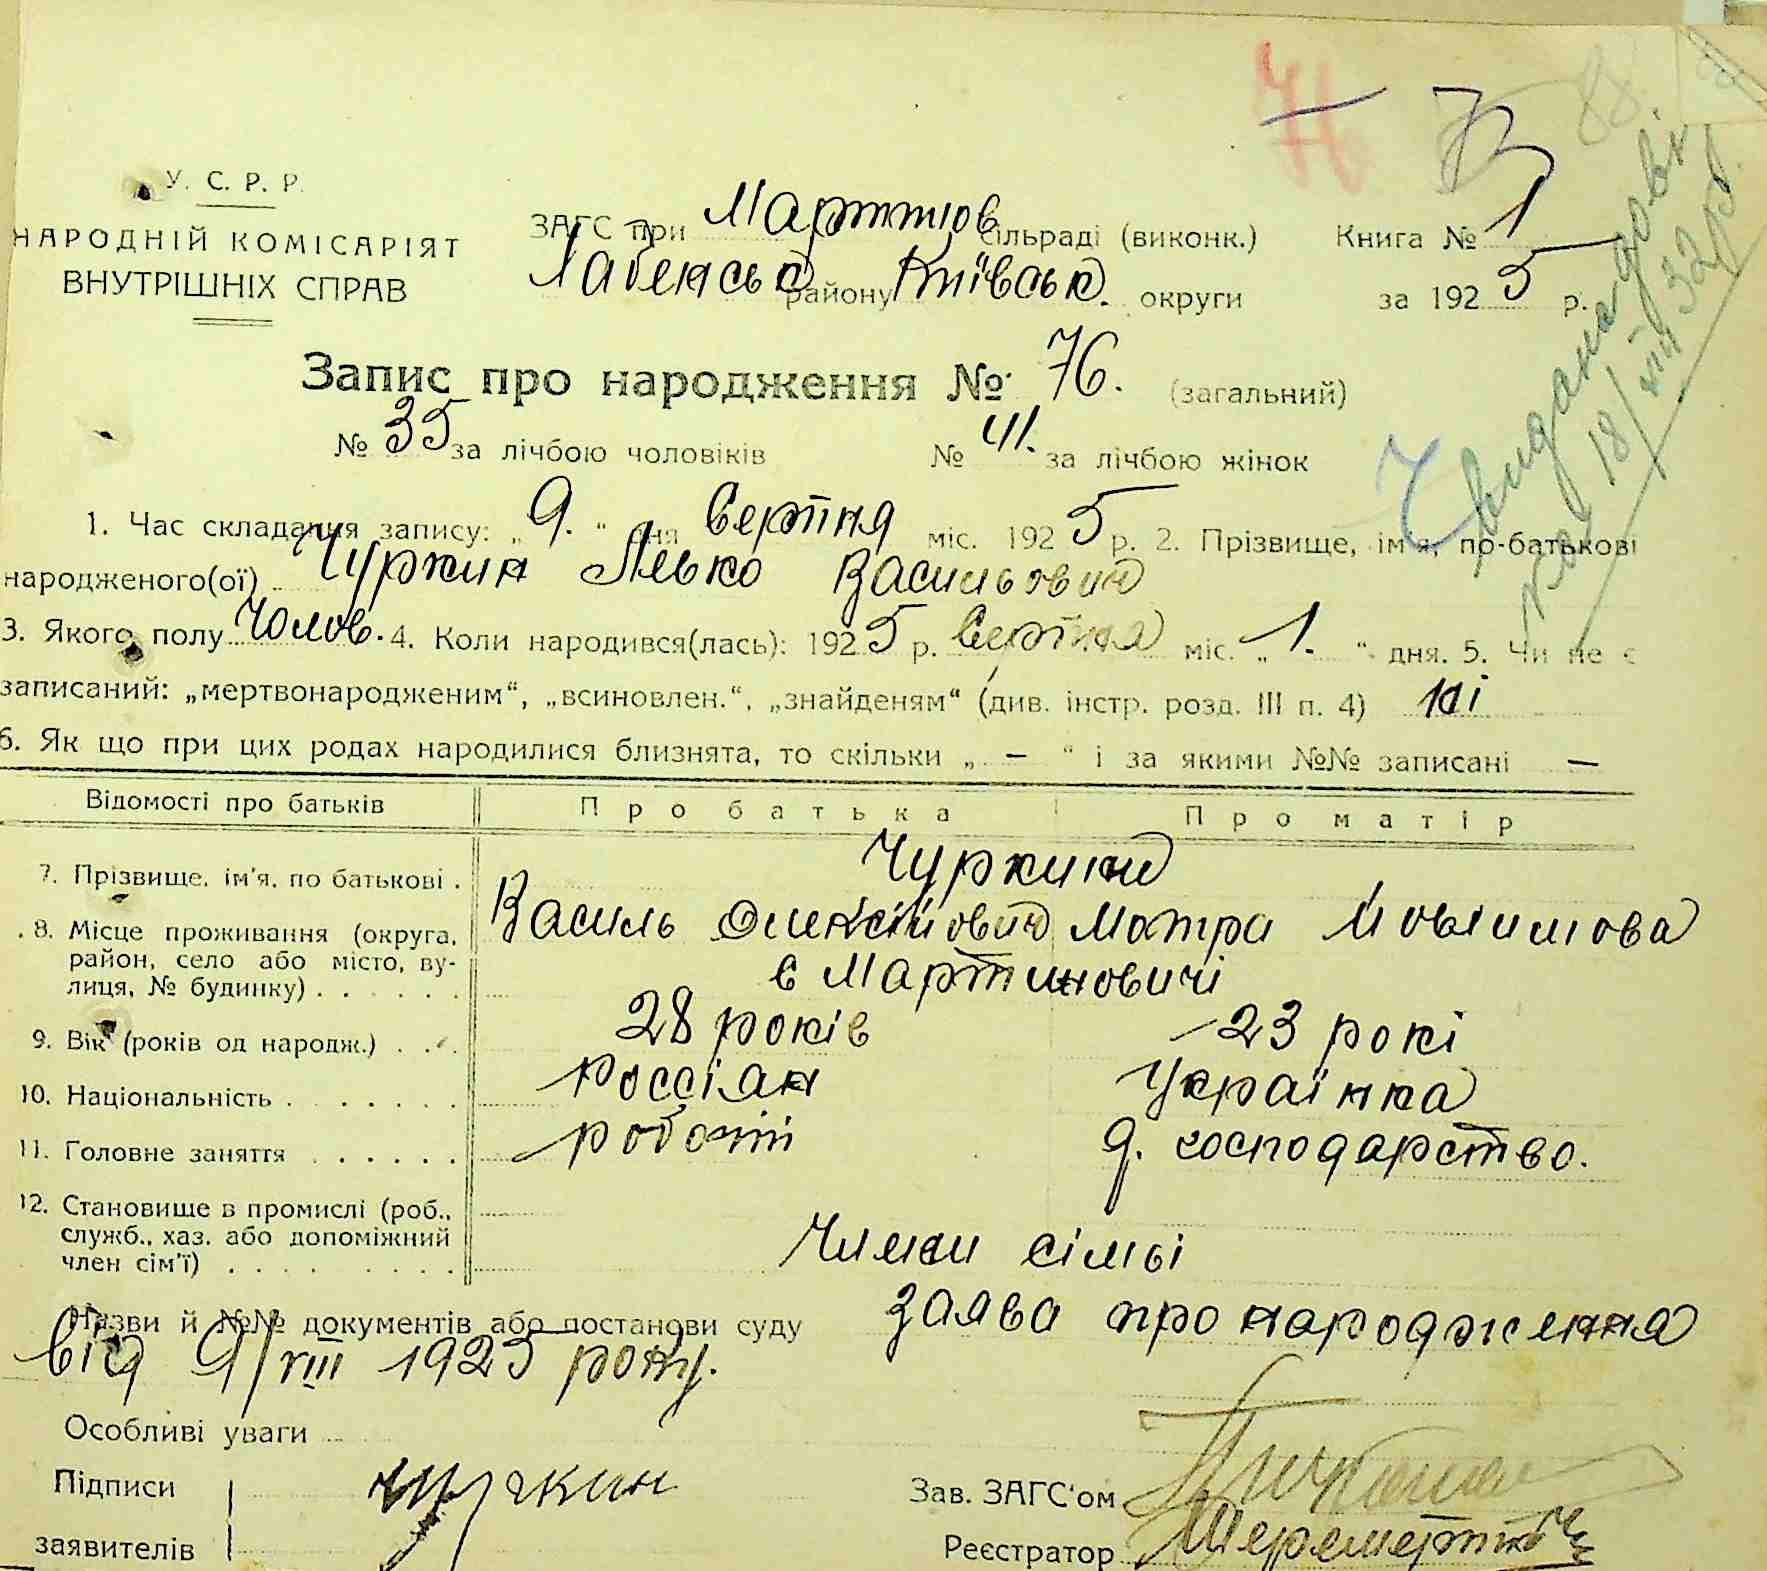 76 73 88
У. С. Р. Р.
НАРОДНІЙ КОМІСАРІЯТ
ВНУТРІШНІХ СПРАВ
ЗАГС при Мартинов сільраді (виконк.) Книга № 1
Хабенськ району Київськ. округи за 1925 р.
видана довід
18/VIII 32 р.
Запис про народження № 76. (загальний)
№ 35 за лічбою чоловіків № 41. за лічбою жінок
1. Час складання запису: „9.“ дня Серпня міс. 1925 р. 2. Прізвище, ім'я, по-батькові
народженого(ої) Чуркин Лько Васильович
3. Якого полу Чолов. 4. Коли народився(лась): 1925 р. Серпня міс. „1.“ дня. 5. Чи не є
записаний: „мертвонародженим“, „всиновлен.“, „знайденям“ (див. інстр. розд. III п. 4) ні
6. Як що при цих родах народилися близнята, то скільки „ — “ і за якими №№ записані —
Відомості про батьків Про батька Про матір
7. Прізвище, ім'я, по батькові . Чуркини
Василь Олексійович Мотря
8. Місце проживання (округа, район, село або місто, ву-
лиця, № будинку) . . . . . . с Мартиновичі
9. Вік (років од народж.) . . . 28 років 23 рокі
10. Національність . . . . . . . Россіян Українка
11. Головне заняття . . . . . . роботі д. господарство.
12. Становище в промислі (роб.,
служб., хаз. або допоміжний
член сім'ї) . . . . . . . . . Члени сімьі
Назви й №№ документів або постанови суду заява про народження
від 9/VIII 1925 року.
Особливі уваги
Підписи Чуркин Зав. ЗАГС'ом
заявителів Реєстратор